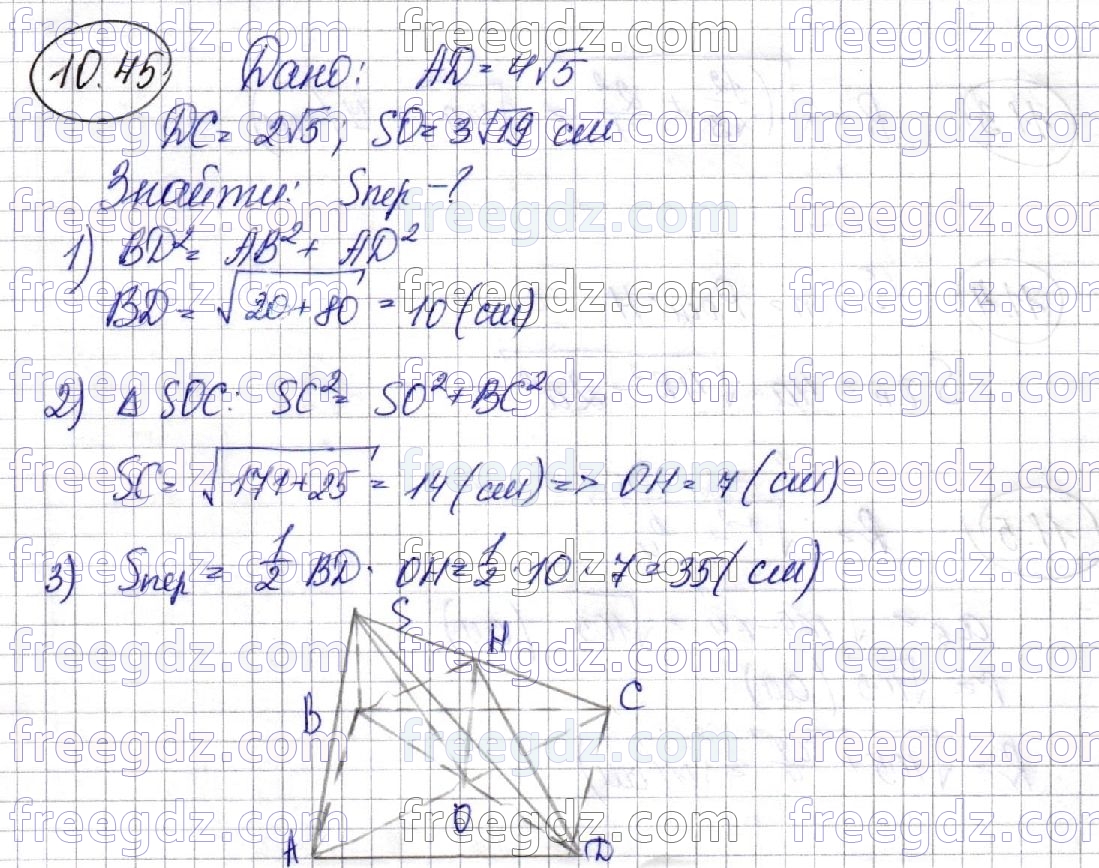 10.45 Дано: AD = 4√5
DC = 2√5; SO = 3√19 см
Знайти: Sпер - ?
1) BD² = AB² + AD²
BD = √20+80 = 10 (см)
2) Δ SOC: SC² = SO² + BC²
SC = √171+25 = 14 (см) => OH = 7 (см)
3) Sпер = 1/2 BD · OH = 1/2 · 10 · 7 = 35 (см)
S
H
B C
O
A D
freegdz.com